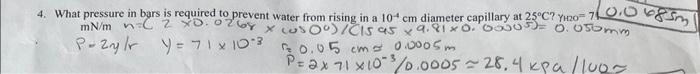 4. What pressure in bars is required to prevent water from rising in a 10⁻⁴ cm diameter capillary at 25°C? γH2O= 71 0.0685m
mN/m n=( 2 x0.0268 x cos0°)/(1595 x 9.81 x 0.00005)= 0.056mm
P=2γ/r y=71x10⁻³ r= 0.05 cm= 0.0005m
P=2x71x10⁻³/0.0005≈28.4 kpa/100≈